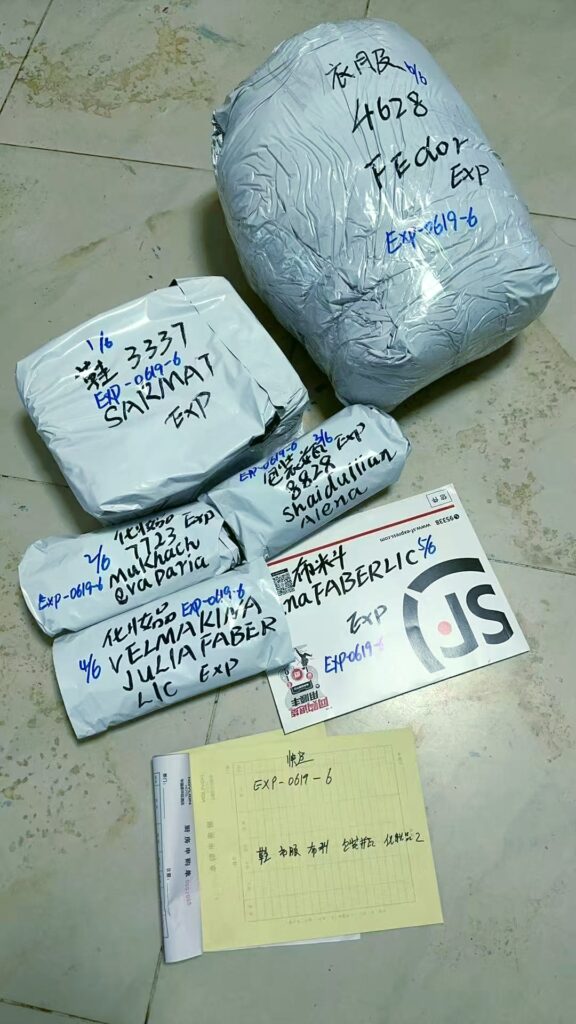 衣服 6/6
4628
FEdor
Exp
Exp-0619-6
1/6
鞋 3337
EXP-0619-6
SARMAT
Exp
EXP-0619-6 3/6 Exp
8828
Shaidullian
Alena
化妆品
7723 Exp
2/6 Mukhach
EXP-0619-6 evaparia
化妆品 EXP-0619-6
4/6 VELMAKINA
JULIA FABER
LIC Exp
www.sf-express.com 95338
布料 5/6
na FABERLIC
Exp
EXP-0619-6
SF
用顺丰
快递
EXP-0619-6
鞋 衣服 布料 化妆品2